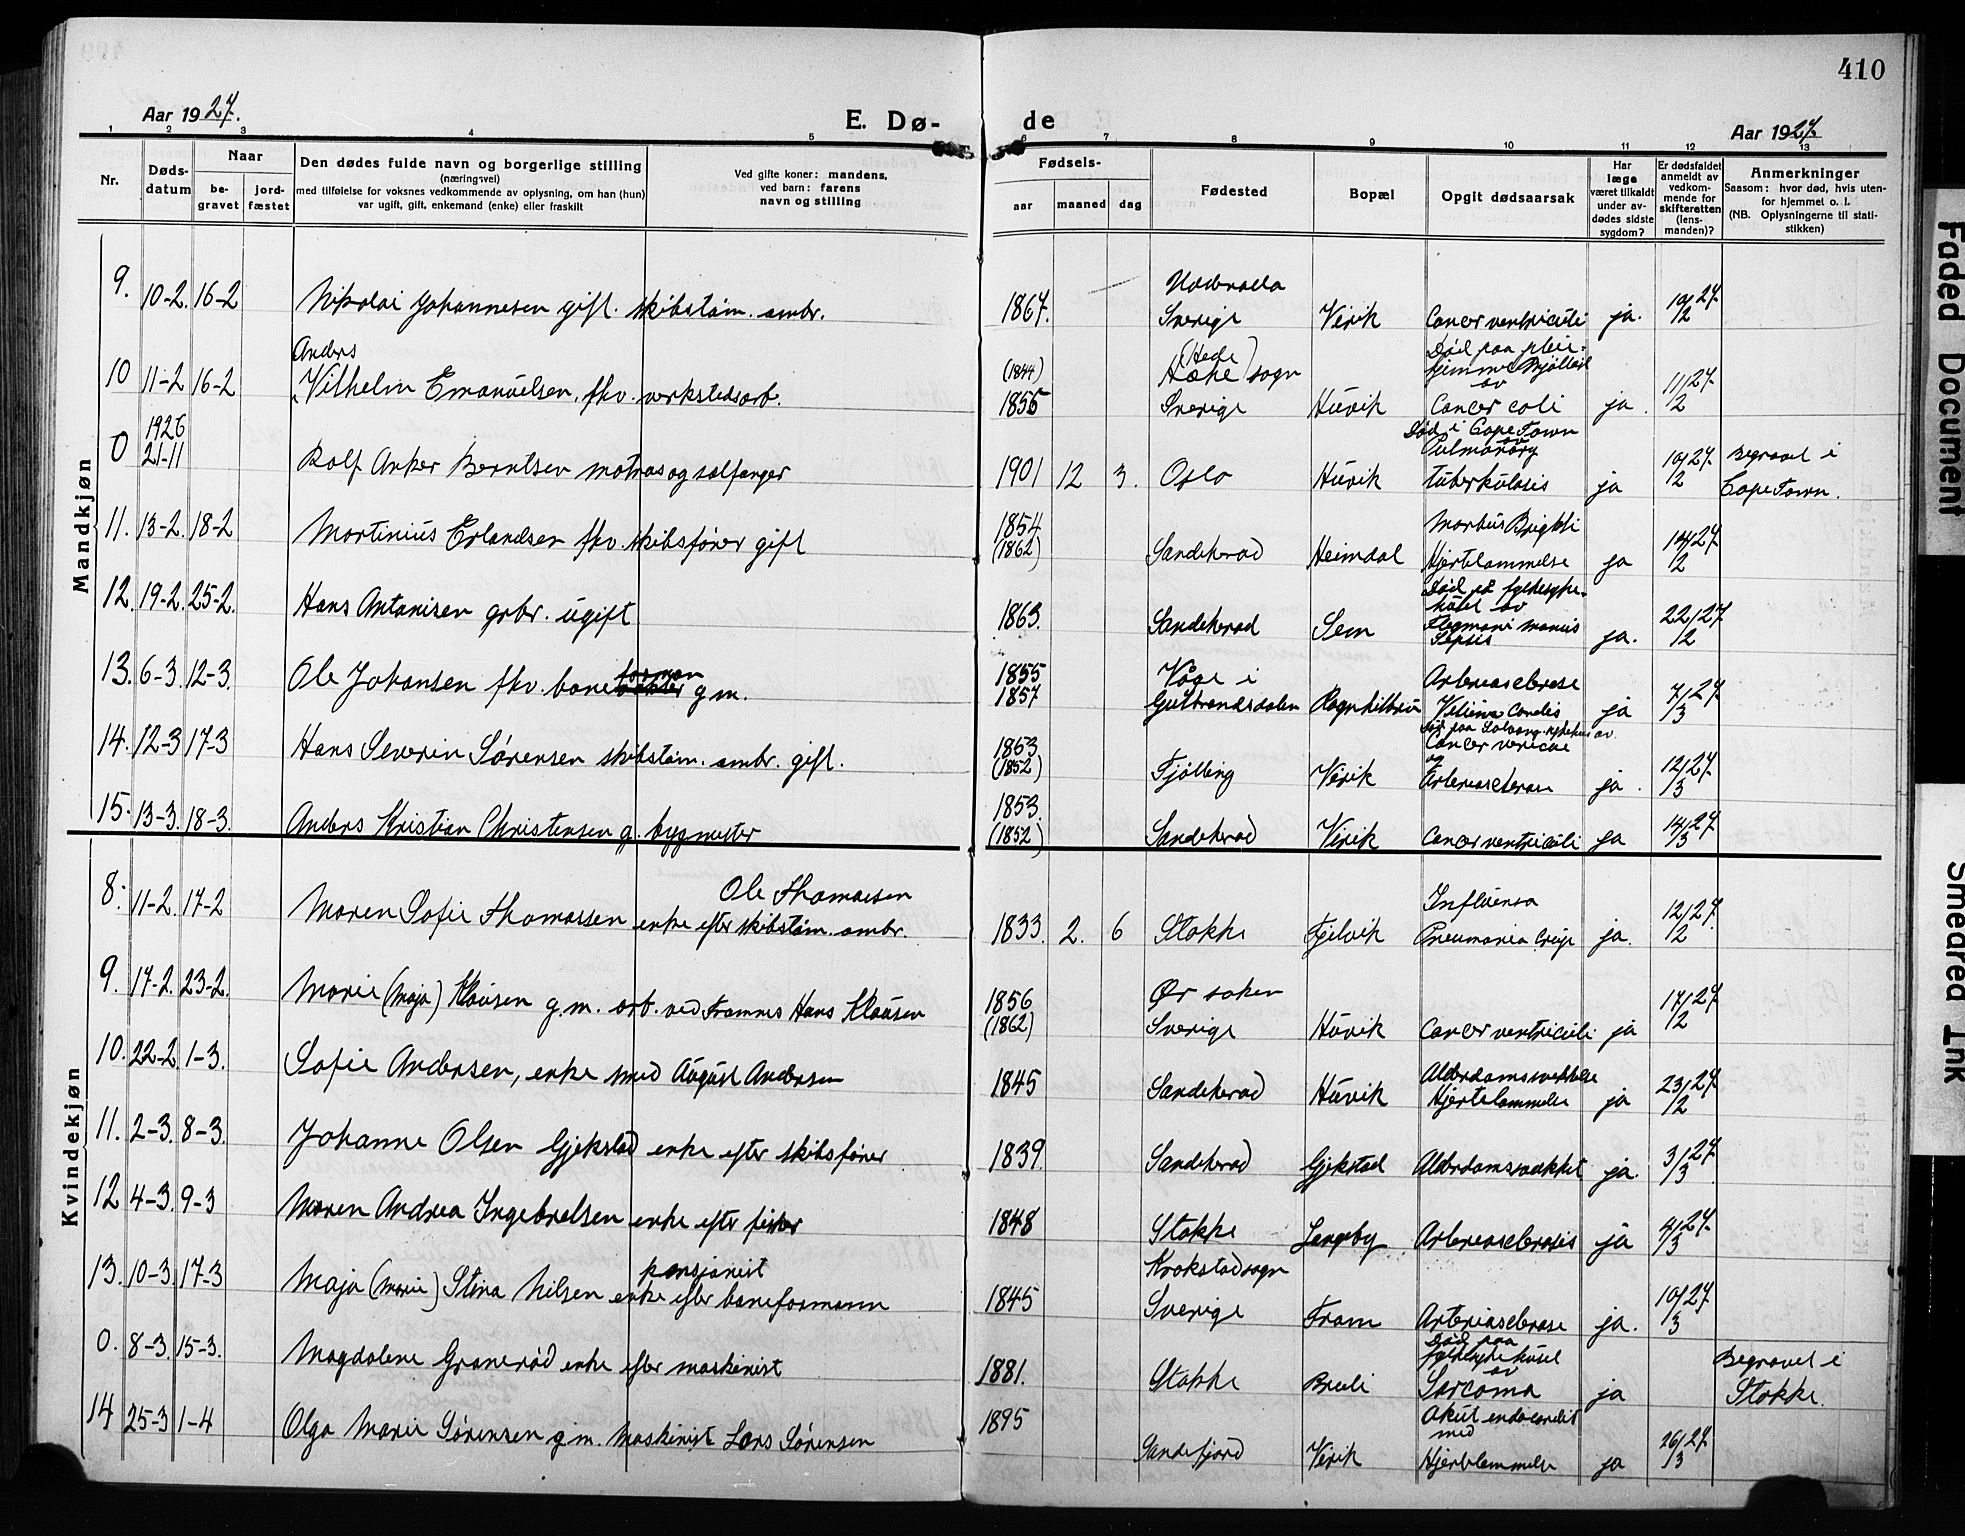 410
Aar 1927.
E. Dø-
de
Aar 1927.
1 2 3 4 5 6 7 8 9 10 11 12 13
Nr.
Døds-
datum
Naar
be-
gravet
jord-
fæstet
Den dødes fulde navn og borgerlige stilling
(næringsvei)
med tilføielse for voksnes vedkommende av oplysning, om han (hun)
var ugift, gift, enkemand (enke) eller fraskilt
Ved gifte koner: mandens,
ved barn: farens
navn og stilling
Fødsels-
aar maaned dag
Fødested
Bopæl
Opgit dødsaarsak
Har
læge
været tilkaldt
under av-
dødes sidste
sygdom?
Er dødsfaldet
anmeldt av
vedkom-
mende for
skifteretten
(lens-
manden)?
Anmerkninger
Saasom: hvor død, hvis uten-
for hjemmet o. l.
(NB. Oplysningerne til stati-
stikken)
Mandkjøn
9. 10-2. 16-2 Nikolai Johannesen gift. skibstøm. ambr. 1867. Sverige Virik Cancer ventriculi ja. 10/2 27.
Anders
10 11-2 16-2 Vilhelm Emanuelsen, fhv. verkstedsarb. (1844) 1855 (Hede) sogn Sverige Huvik Død paa pleie-
hjemmet av
Cancer coli ja. 11/2 27.
0 1926 21-11 Rolf Anker Berntsen matros og sælfanger 1901 12 3. Oslo Huvik Død i Cape Town av
Pulmonary
tuberkulosis ja 10/2 27. Begravet i
Cape Town.
11. 13-2. 18-2 Martinius Erlandsen fhv. skibsfører gift 1854 (1862) Sandeherad Heimdal Morbus Brigthi
Hjertelammelse ja 14/2 27.
12. 19-2. 25-2. Hans Antonisen grbr. ugift 1863. Sandeherad Sem Død på fylkessyke-
huset av
Flegmone manus
Sepsis ja. 22/2 27
13. 6-3. 12-3. Ole Johansen fhv. baneforman g m. 1855 1857 Våge i
Gudbrandsdalen Ragnhilbru Arteriosclerose
Vitium Cordis ja 7/3 27.
14. 12-3 17-3 Hans Severin Sørensen skibstøm. ambr. gift. 1863 (1852) Tjølling Virik Død paa Solvang sykehus av
Cancer vesicae
og
Arteriosclerose ja. 12/3 27.
15. 13-3. 18-3. Anders Kristian Christensen g. bygmester 1853. (1852) Sandeherad Virik Cancer ventriculi ja 14/3 27.
Kvindekjøn
8. 11-2. 17-2 Maren Sofie Thomassen enke efter skibstøm. ambr. Ole Thomassen 1833. 2. 6 Stokke Fjelvik Influensa
Pneumonia Crup. ja. 12/2 27.
9. 17-2. 23-2. Marie (Maja) Klausen g. m. arb. ved Framnes Hans Klausen 1856 (1862) Ør soken
Sverige Huvik Cancer ventriculi ja 17/2 27.
10. 22-2. 1-3. Sofie Andersen, enke med August Andersen 1845 Sandeherad Huvik Alderdomssvekkelse
Hjertelammelse ja 23/2 27.
11. 2-3. 8-3. Johanne Olsen Gjekstad enke efter skibsfører 1839. Sandeherad Gjekstad Alderdomssvakhet ja. 3/3 27.
12 4-3. 9-3 Maren Andrea Ingebretsen enke efter fisker 1848 Stokke Langeby Arteriosclerosis ja 4/3 27.
13. 10-3. 17-3 Maja (Marie) Stina Nilsen enke efter pensjonist baneformann 1845 Krokstad sogn
Sverige Fram Arteriosclerose ja. 10/3 27.
0. 8-3. 15-3. Magdalene Granerød enke efter maskinist 1881. Stokke Breili Død paa
fylkessykehuset
av
Sarcoma ja Begravet i
Stokke.
14 25-3 1-4 Olga Marie Sørensen g m. maskinist Lars Sørensen 1895 Sandefjord Virik Akut endocardit
med
Hjertelammelse ja 26/3 27.
Faded Document
Smeared Ink